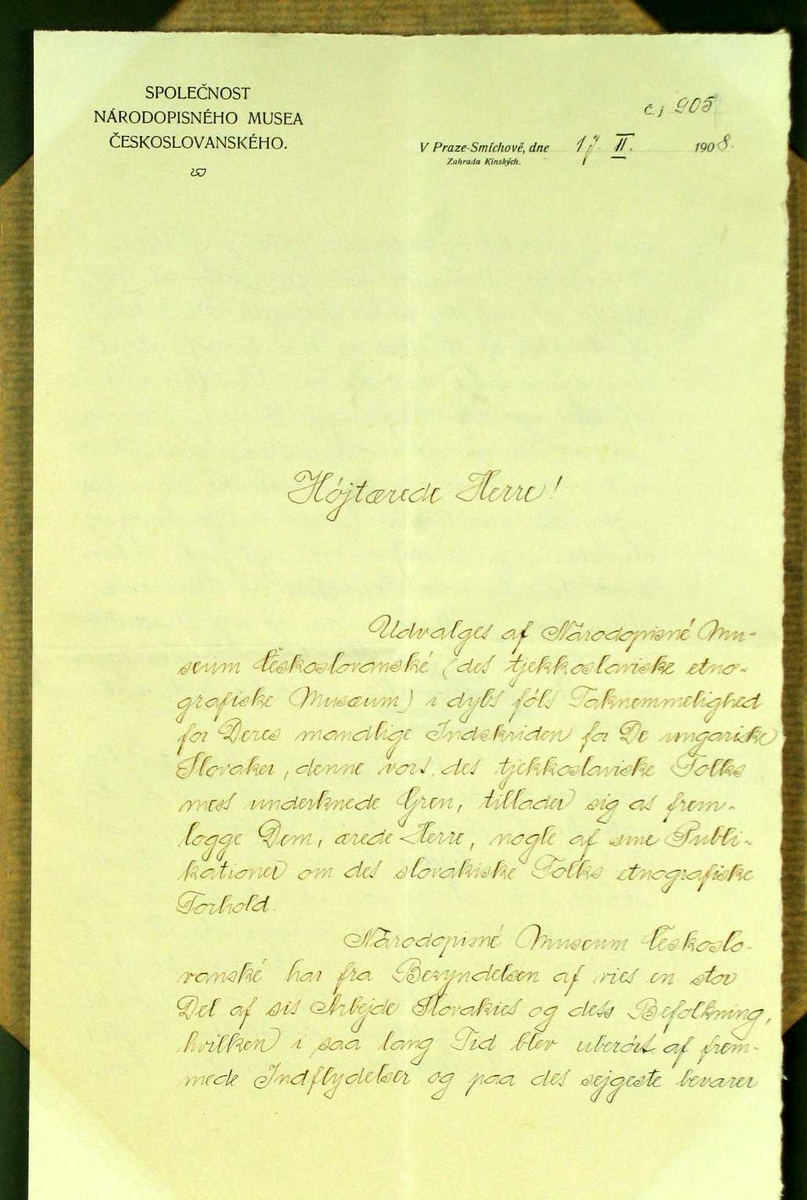 SPOLEČNOST
NÁRODOPISNÉHO MUSEA
ČESKOSLOVANSKÉHO.
č.j 905
V Praze-Smíchově, dne 17. II. 1908.
Zahrada Kinských.
Højtærede Herre!
Udvalges af Národopisné Mu-
seum Českoslovanské (des tjekkoslaviske etno-
grafiske Museum) i dybs föls Taknemmelighed
for Deres mandlige Indskriden for De ungariske
Slovaker, denne vors, des tjekkoslaviske Folks
mess underknede Gren, tillader sig as frem-
lægge Dem, ærede Herre, nogle af sine Publi-
kationer om des slovakiske Folks etnografiske
Forhold.
Národopisné Museum Českoslo-
vanské har fra Begyndelsen af vies en stor
Del af sis Arbejde Slovakies og dess Befolkning,
hvilken i saa lang Tid blev uberörs af frem-
mede Indflydelser og paa des sejgeste bevarer